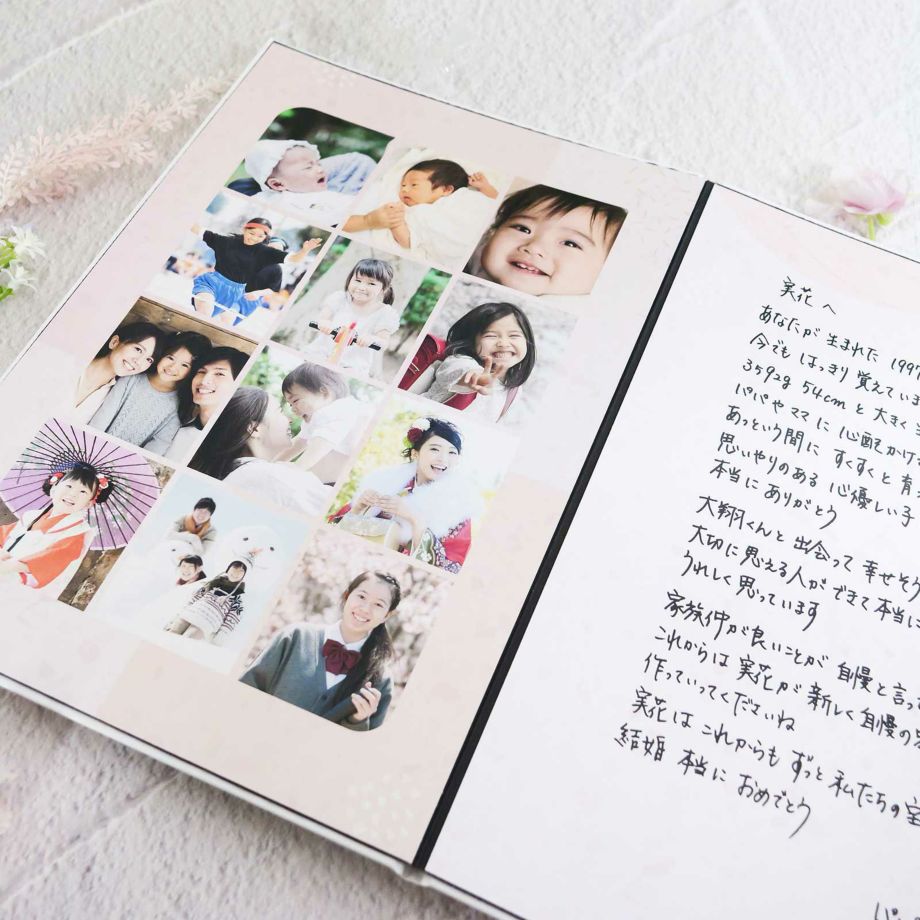 実花へ
あなたが生まれた 1997
今でもはっきり覚えていま
3592g 54cmと大きく
パパやママに心配かけ
あっという間にすくすくと育
思いやりのある心優しい子
本当にありがとう
大翔くんと出会って幸せそう
大切に思える人ができて本当に
うれしく思っています
家族仲が良いことが自慢と言っ
これからは実花が新しく自慢の
作っていってくださいね
実花はこれからもずっと私たちの宝
結婚 本当におめでとう
パ